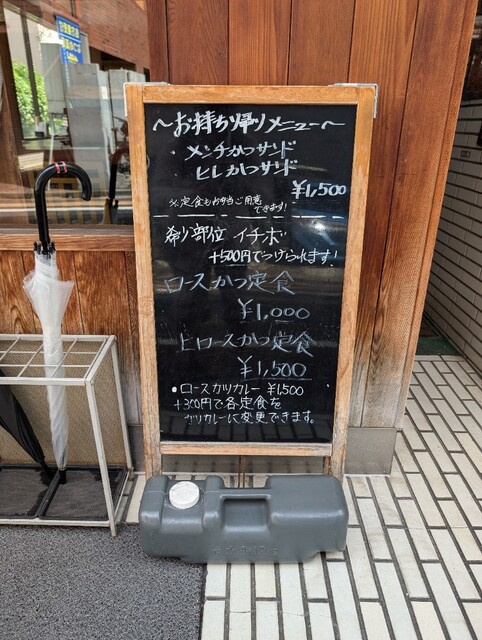 〜お持ち帰りメニュー〜
・メンチかつサンド
ヒレかつサンド
¥1,500
※定食もお弁当ご用意
できます!
希少部位 イチボ
+500円でつけられます!
ロースかつ定食
¥1,000
上ロースかつ定食
¥1,500
•ロースカツカレー ¥1,500
+300円で各定食を
カツカレーに変更できます。